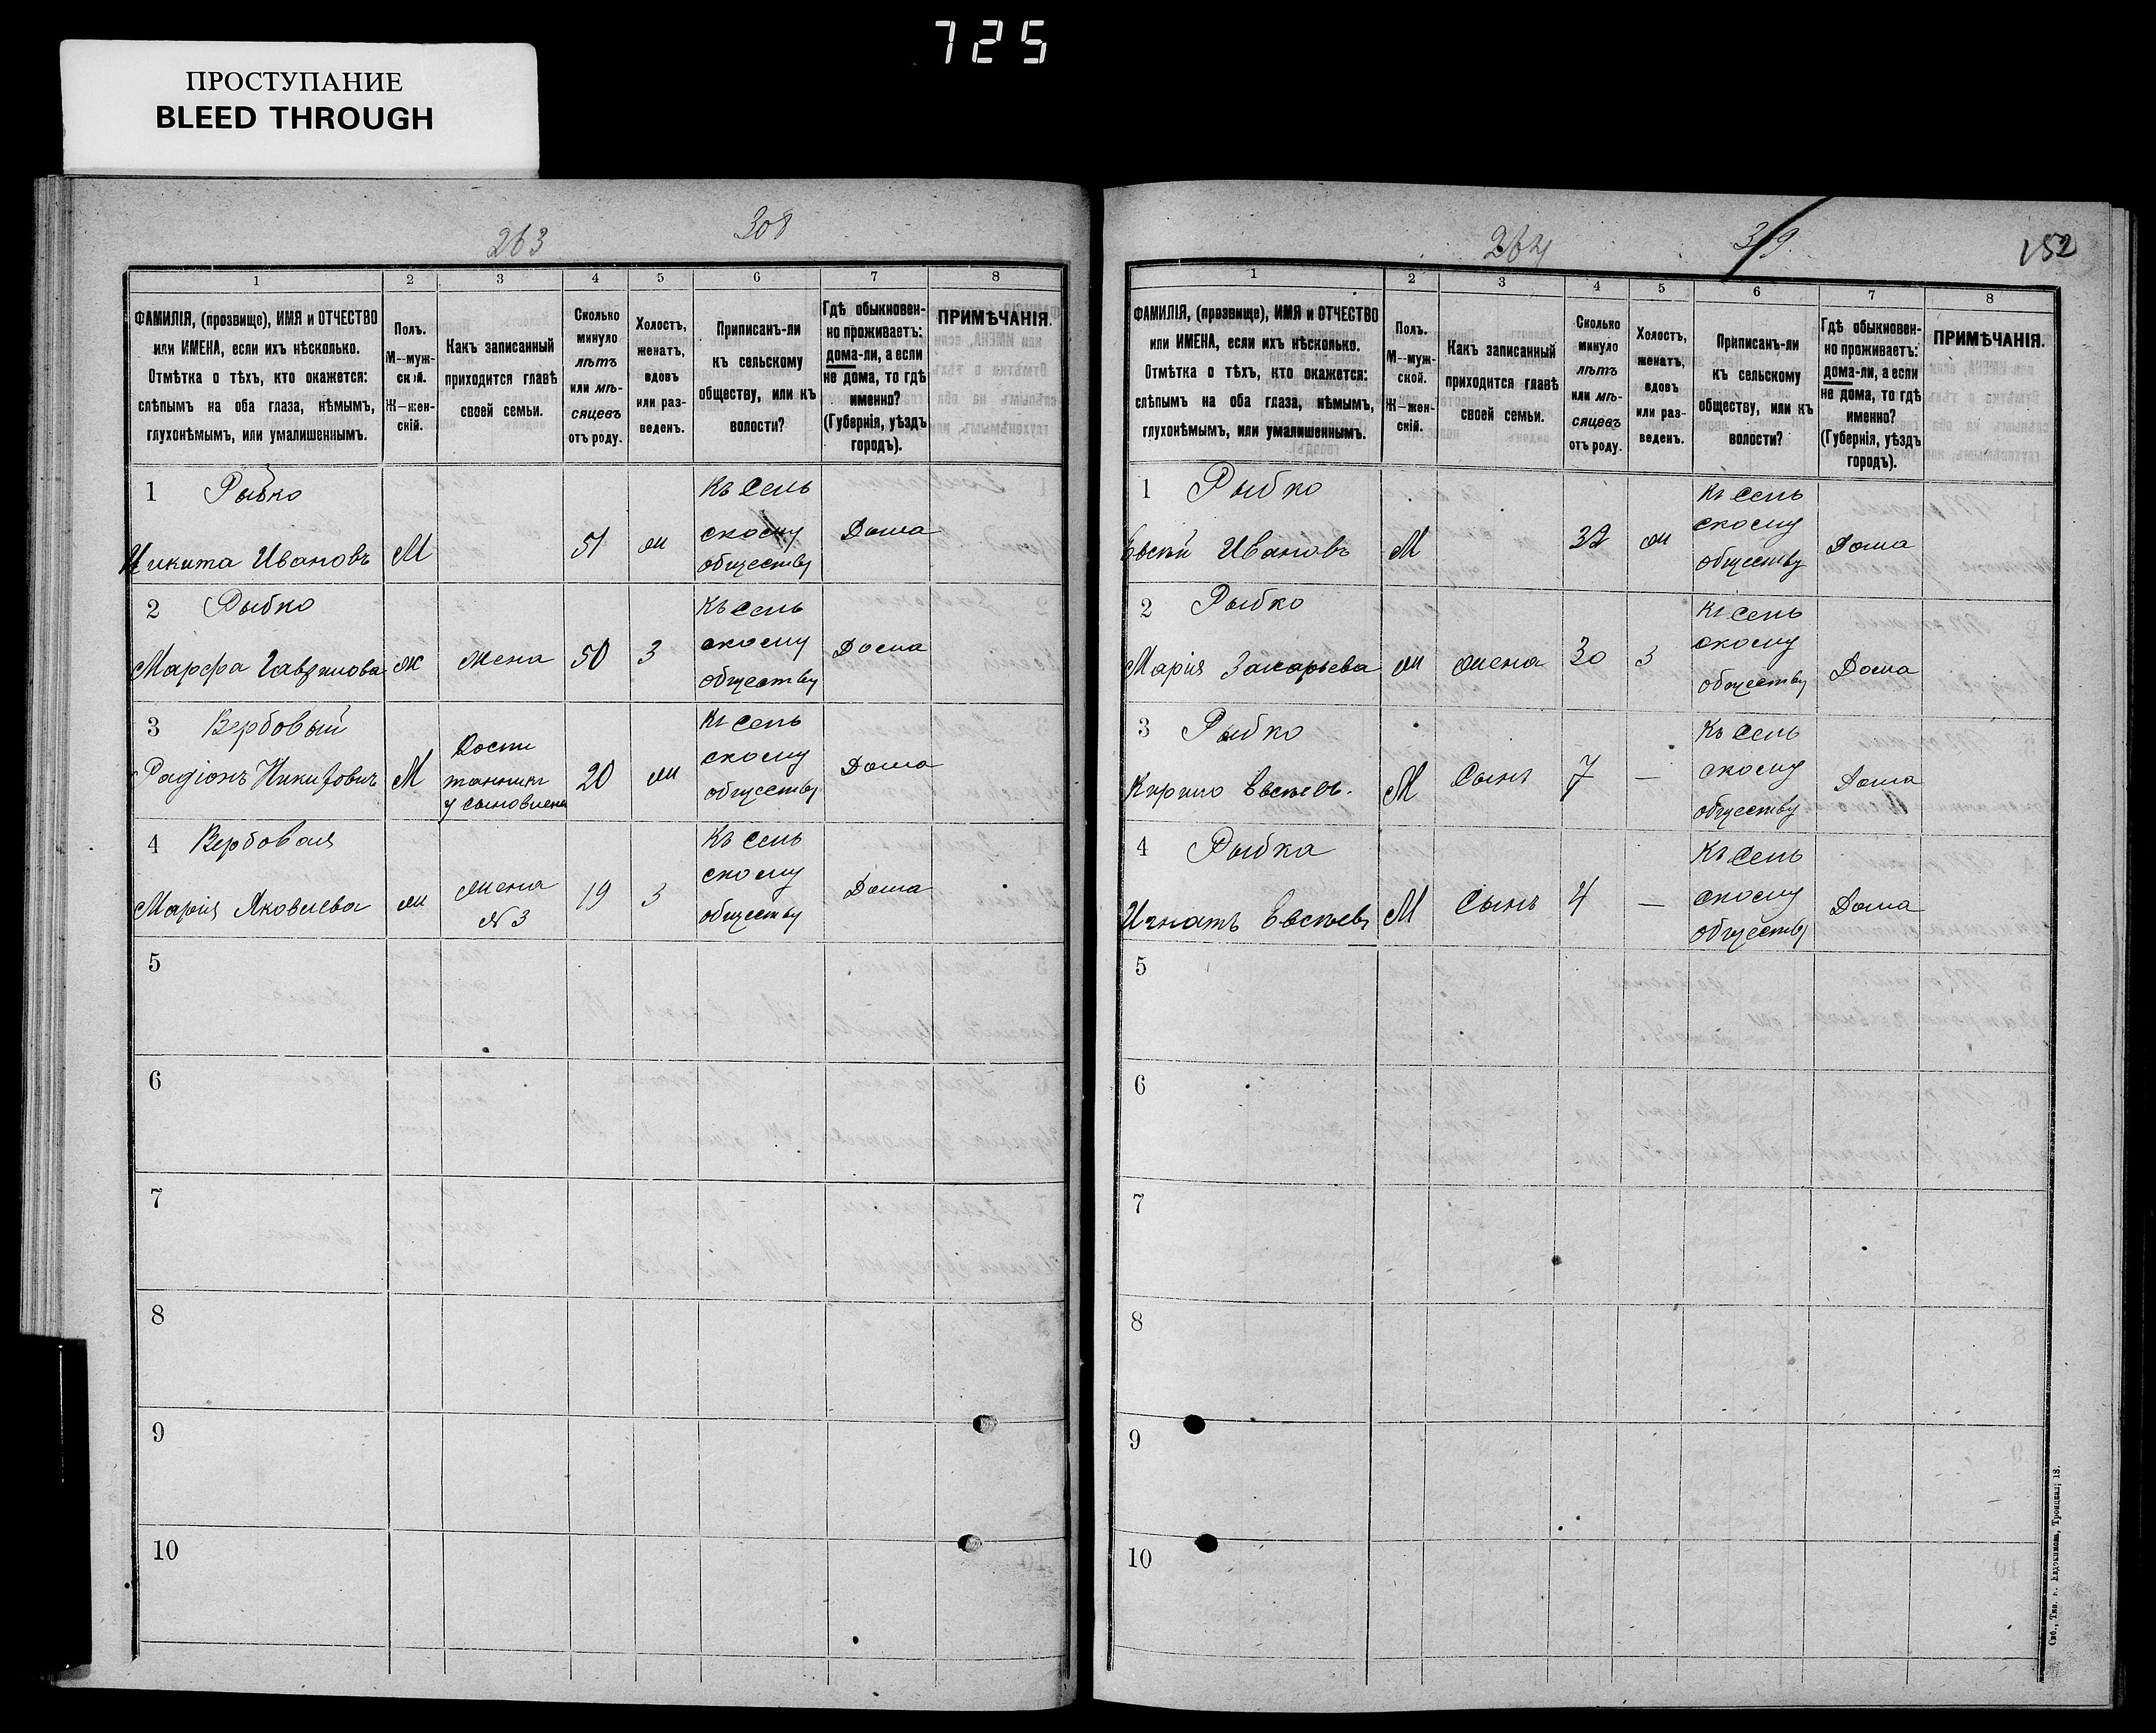 725
ПРОСТУПАНИЕ
BLEED THROUGH
263
308
1
2
3
4
5
6
7
8
ФАМИЛІЯ, (прозвище), ИМЯ и ОТЧЕСТВО
или ИМЕНА, если ихъ нѣсколько.
Отмѣтка о тѣхъ, кто окажется:
слѣпымъ на оба глаза, нѣмымъ,
глухонѣмымъ, или умалишеннымъ.
Полъ.
М—муж-
ской.
Ж—жен-
скій.
Какъ записанный
приходится главѣ
своей семьи.
Сколько
минуло
лѣтъ
или мѣ-
сяцевъ
отъ роду.
Холостъ,
женатъ,
вдовъ
или раз-
веденъ.
Приписанъ-ли
къ сельскому
обществу, или къ
волости?
Гдѣ обыкновен-
но проживаетъ:
дома-ли, а если
не дома, то гдѣ
именно?
(Губернія, уѣздъ
городъ).
ПРИМѢЧАНІЯ.
1 Рыбко
Никита Ивановъ
М
51
ж
Къ сель
скому
обществу
Дома
2 Рыбко
Марфа
ж
жена
50
З
Къ сель
скому
обществу
Дома
3 Вербовый
Радіонъ
М
20
ж
Къ сель
скому
обществу
Дома
4 Вербовая
Марія Яковлева
ж
жена
N 3
19
З
Къ сель
скому
обществу
Дома
5
6
7
8
9
10
264
319
152
1
2
3
4
5
6
7
8
ФАМИЛІЯ, (прозвище), ИМЯ и ОТЧЕСТВО
или ИМЕНА, если ихъ нѣсколько.
Отмѣтка о тѣхъ, кто окажется:
слѣпымъ на оба глаза, нѣмымъ,
глухонѣмымъ, или умалишеннымъ.
Полъ.
М—муж-
ской.
Ж—жен-
скій.
Какъ записанный
приходится главѣ
своей семьи.
Сколько
минуло
лѣтъ
или мѣ-
сяцевъ
отъ роду.
Холостъ,
женатъ,
вдовъ
или раз-
веденъ.
Приписанъ-ли
къ сельскому
обществу, или къ
волости?
Гдѣ обыкновен-
но проживаетъ:
дома-ли, а если
не дома, то гдѣ
именно?
(Губернія, уѣздъ
городъ).
ПРИМѢЧАНІЯ.
1 Рыбко
Евсѣй Ивановъ
М
32
ж
Къ сель
скому
обществу
Дома
2 Рыбко
Марія Захарьева
ж
жена
30
З
Къ сель
скому
обществу
Дома
3 Рыбко
Кирило Евсѣевъ.
М
Сынъ
7
—
Къ сель
скому
обществу
Дома
4 Рыбка
Игнатъ Евсѣевъ
М
Сынъ
4
—
Къ сель
скому
обществу
Дома
5
6
7
8
9
10